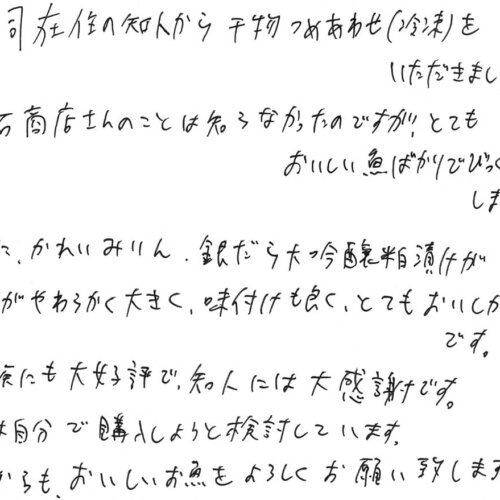 司在住の知人から干物つめあわせ(冷凍)を
いただきまし
石商店さんのことは知らなかったのですが、とても
おいしい魚ばかりでびっく
しま
た、かれいみりん、銀だら大吟醸粕漬けが
がやわらかく大きく、味付けも良く、とてもおいしか
です。
族にも大好評で、知人には大感謝です。
は自分で購入しようと検討しています。
からも、おいしいお魚をよろしくお願い致します